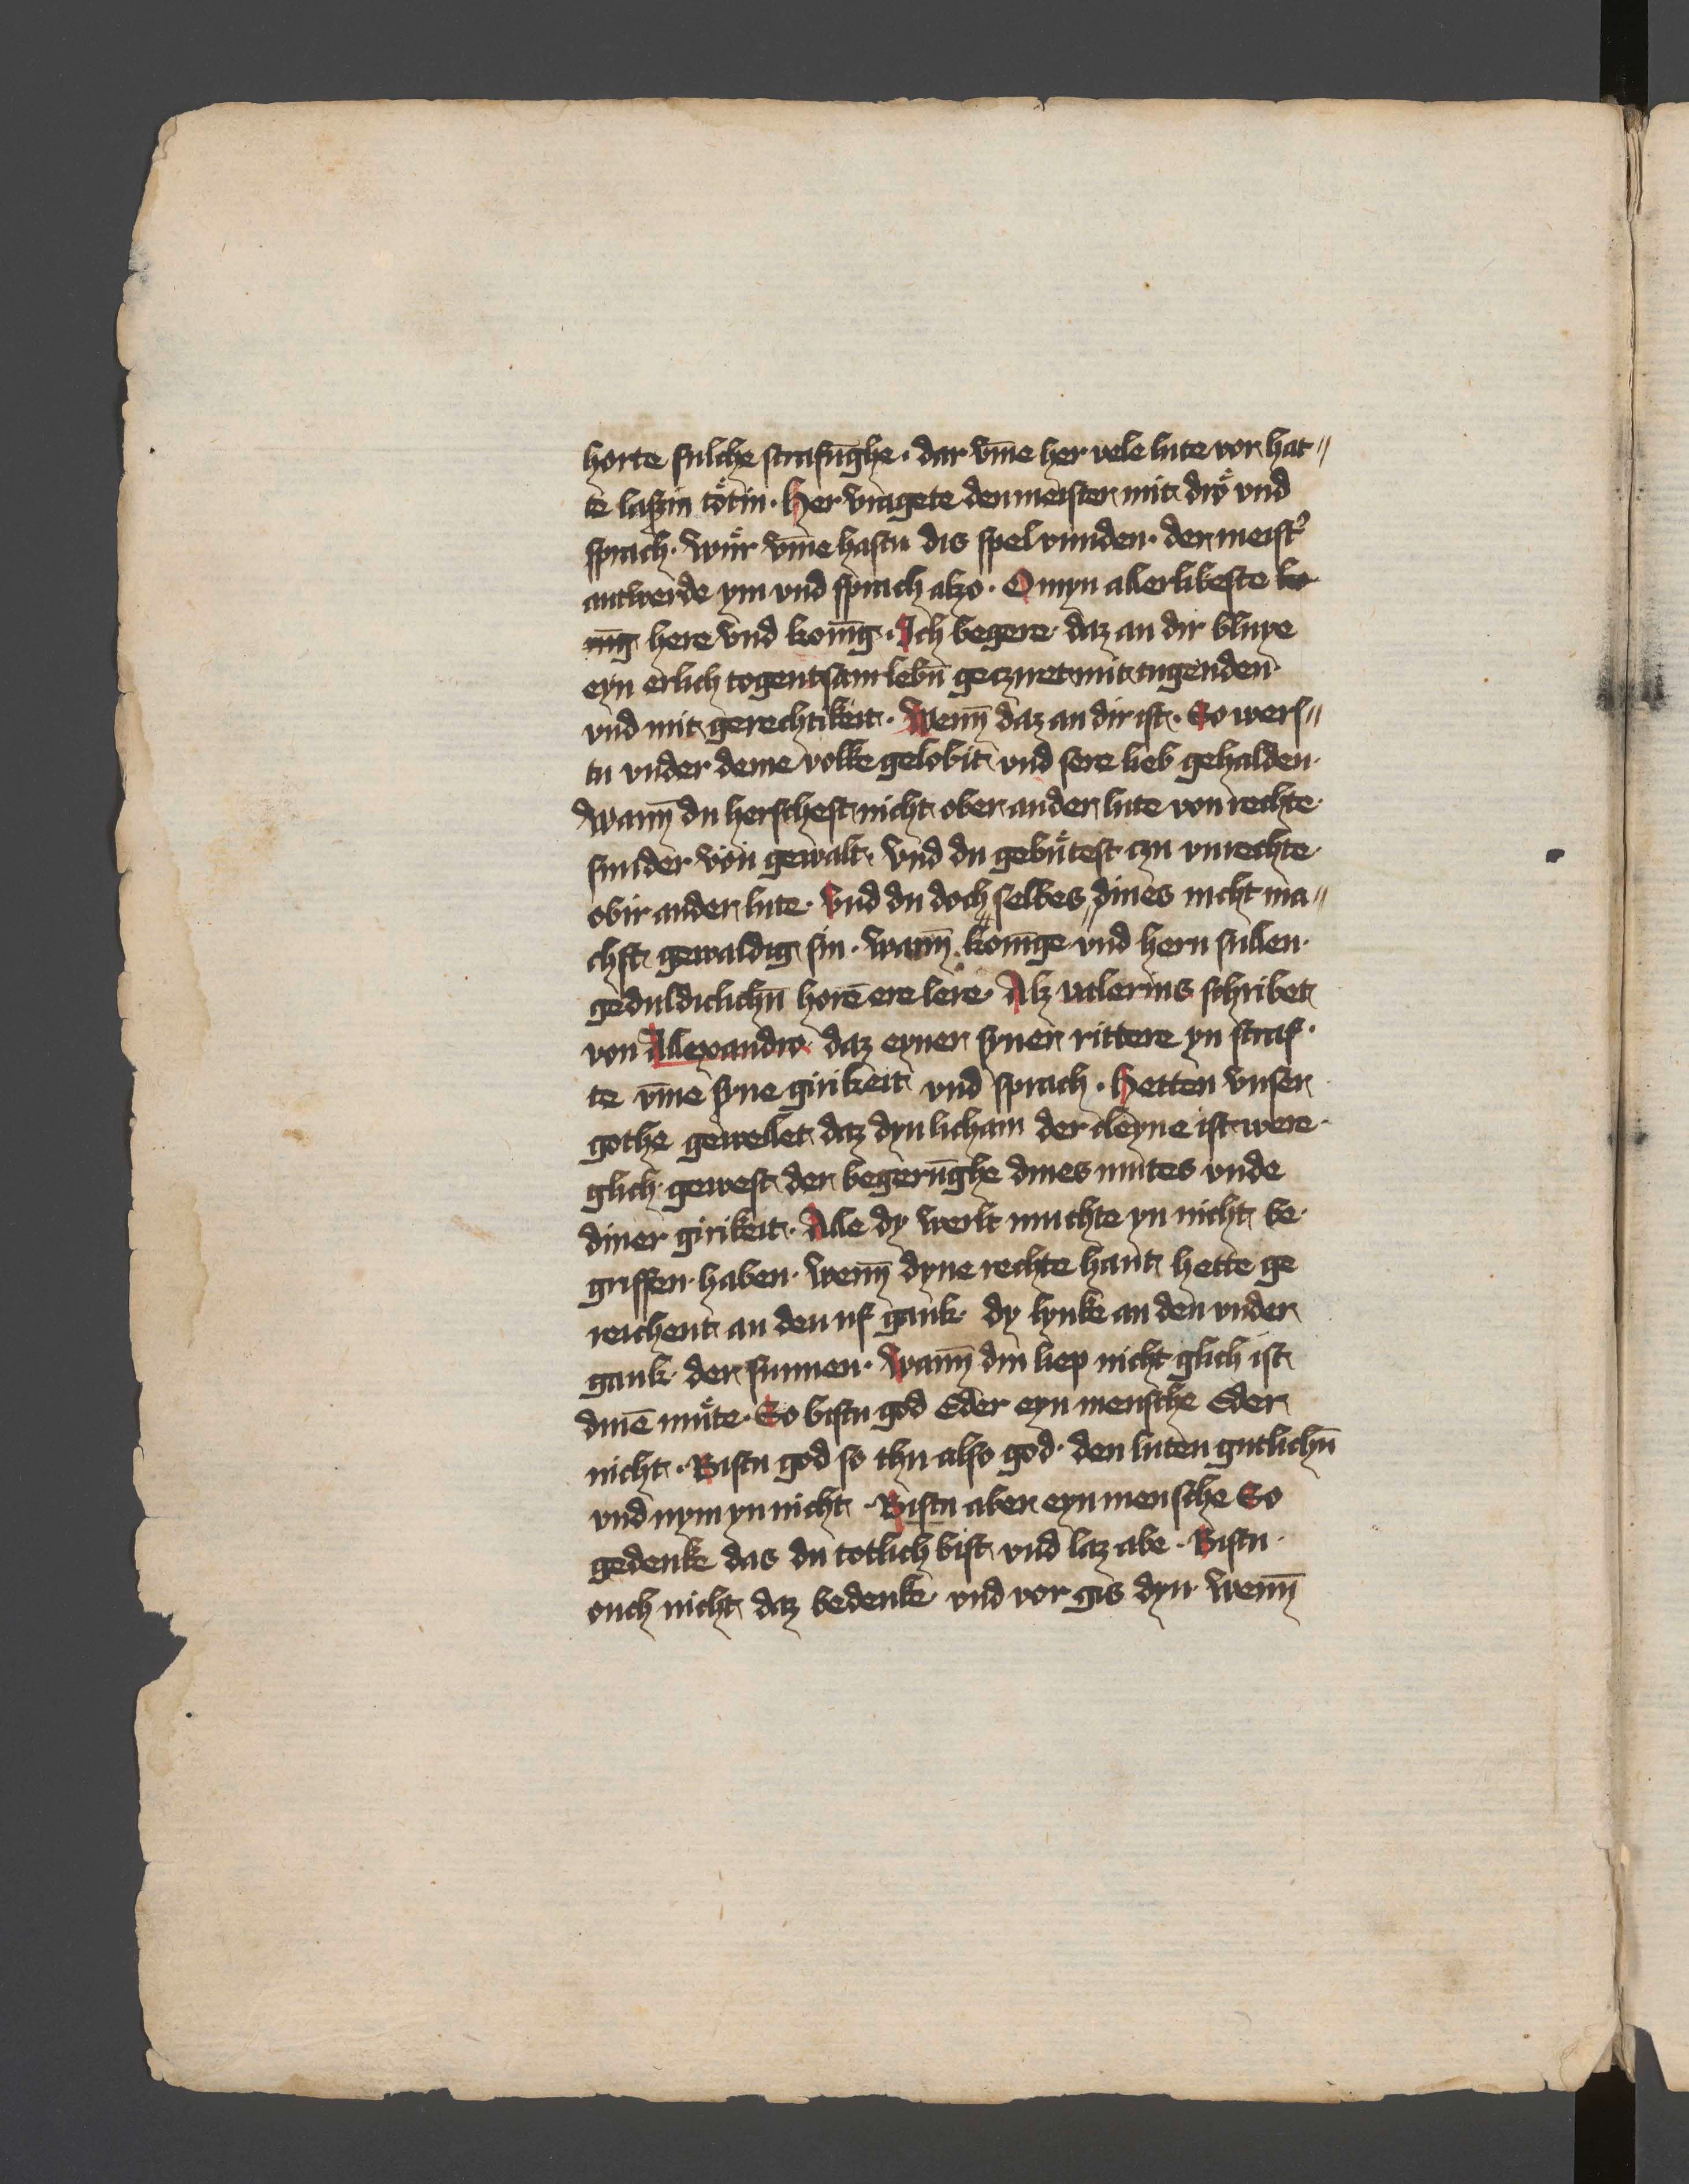 horte sulche strafūghe · dar vm̄e her vele lute vor hat〃
te laszin tötin · Her vragete den meister mit drö vnd
sprach · wůr vm̄e hastu dis spel vunden · der meist᾽
antwerde ym vnd sprach alzo · O myn allerlibeste ko
nīg here vnd konīg · Ich begere daz an dir bluye
eyn erlich togentsam lebn̄ geczuret mit tugenden
vnd mit gerechtikeit · Wenn̄ daz an dir ist · So wers〃
tu vnder deme volke gelobit vnd sere lieb gehalden ·
Wann̄ du herschest nicht ober ander lute von rechte
sunder von gewalt · vnd du gebütest czu vnrechte
obir ander lute · Vnd du doch〃 selbes〃 dines nicht ma〃
chst gewaldig sin · Wann̄ konīge vnd hern sullen
geduldiclichn̄ horē ere lere · Alz valerius schribet
von Allexandro daz eyner syner rittere yn straf ·
te vm̄e syne girikeit vnd sprach · Hetten vnser
gothe gewellet daz dyn licham der cleyne ist were
glich gewest der begerūghe dines mutes vnde
diner girikeit · Alle dy werlt muchte yn nicht be ·
griffen haben · wenn̄ dyne rechte hant hette ge
reichent an den uf gank · dy lynke an den vnder
gank der sunnen · Wann̄ din liep nicht glich ist
dinē můte · So bistu god Eder eyn mensche Eder
nicht · Bistu god so thu also god · den luten gutlichn̄
vnd nym yn nicht · Bistu aber eyn mensche So
gedenke das du totlich bist vnd laz abe · Bistu ·
ouch nicht daz bedenke vnd vor gis dyn · wenn̄